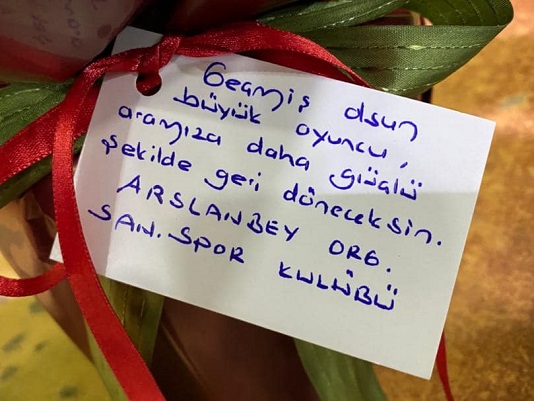 Geçmiş olsun
büyük oyuncu,
aramıza daha güçlü
şekilde geri döneceksin.
ARSLANBEY ORG.
SAN. SPOR KULÜBÜ